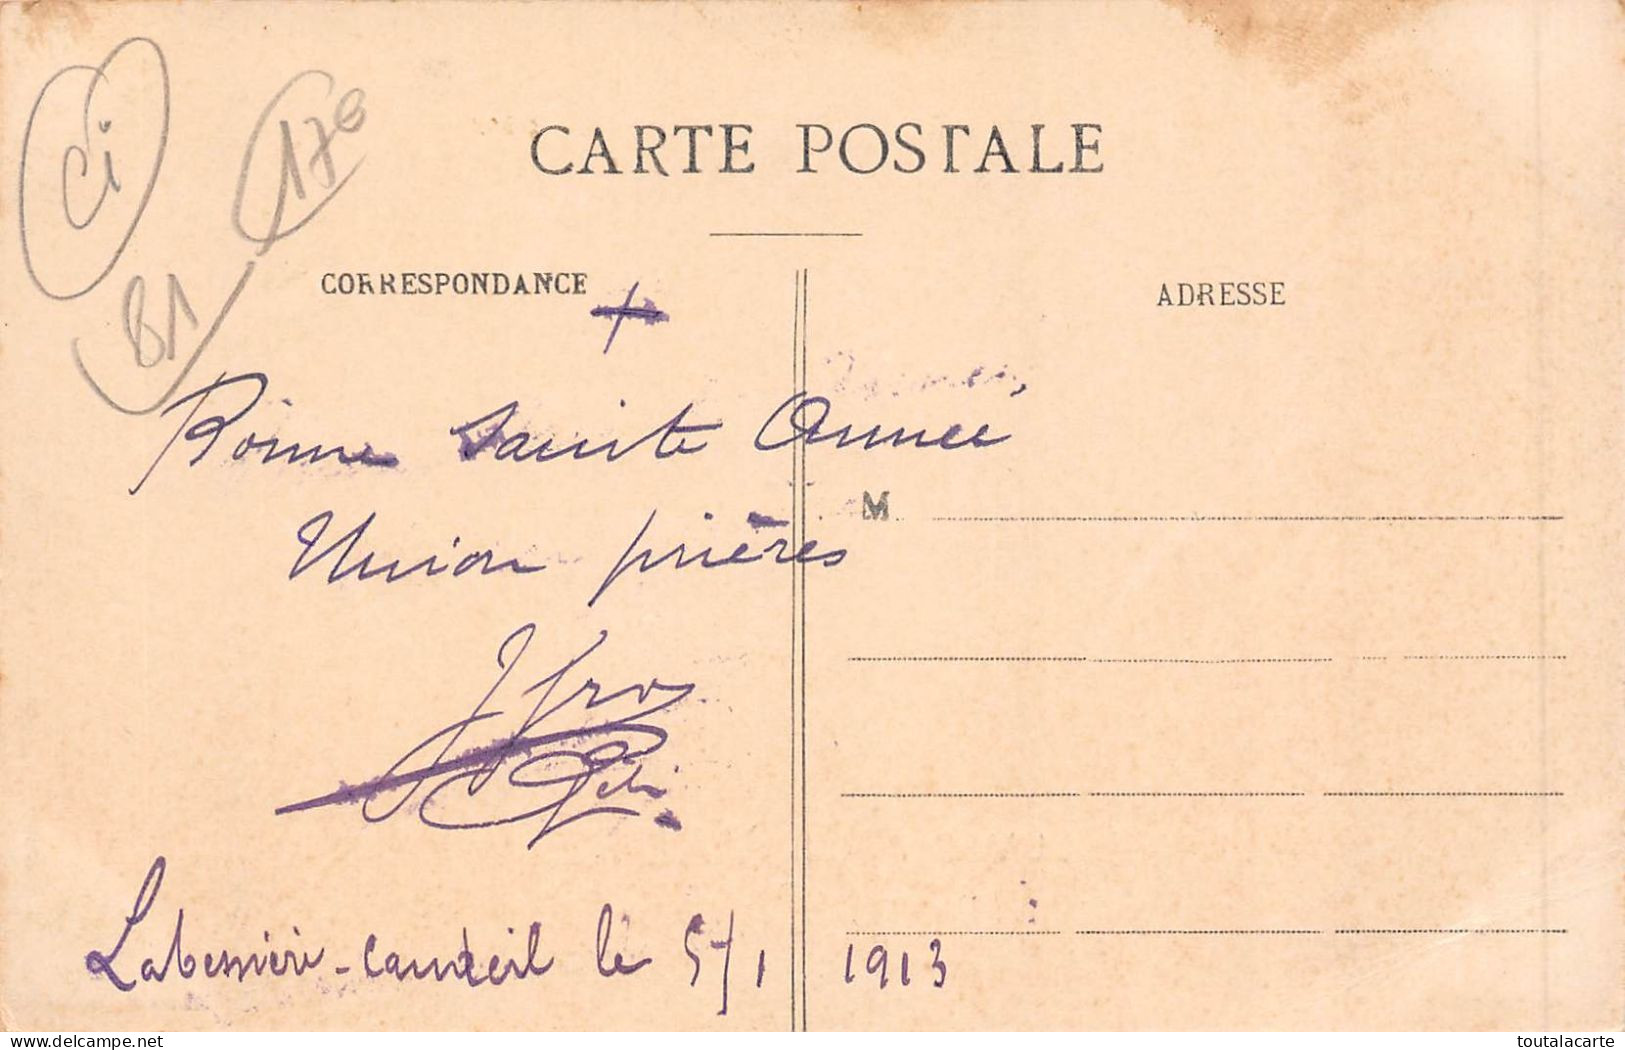 Ci
176
81
CARTE POSTALE
CORRESPONDANCE
ADRESSE
+
Bonne Sainte Année
M
Union prières
Labessière-Candeil le 5/1 1913
delcampe.net
toutalacarte